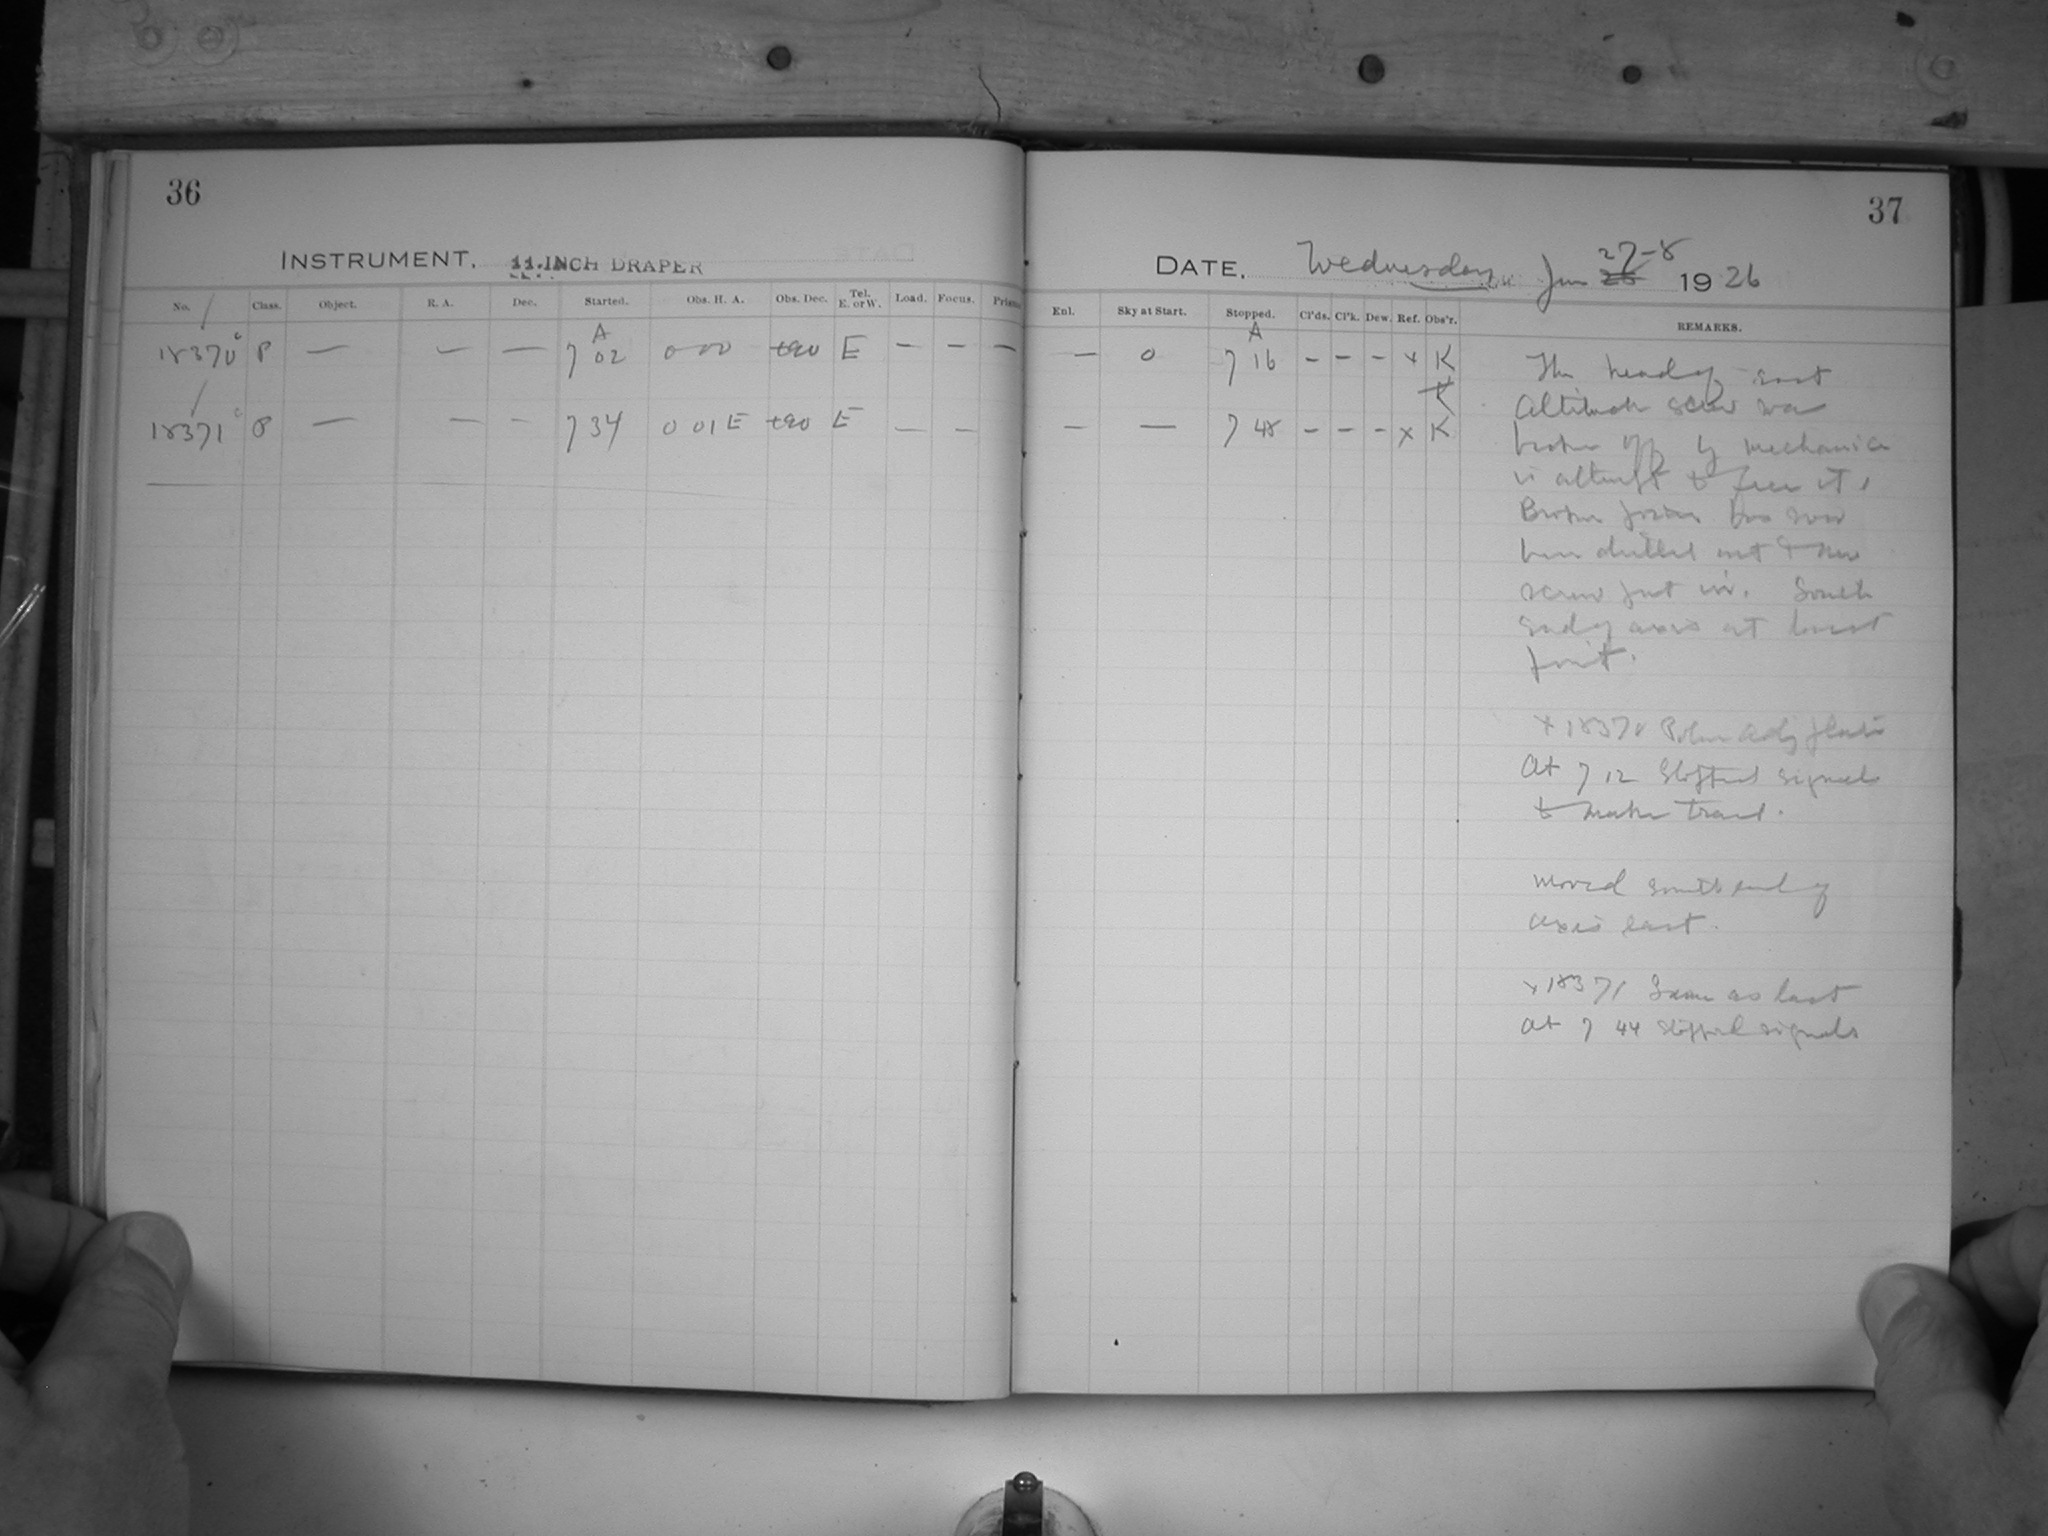 36
INSTRUMENT. 11-INCH DRAPER
No. Class. Object. R. A. Dec. Started. Obs. H. A. Obs. Dec. Tel. E. or W. Load. Focus. Prism
A
18370 c P — — — 7 02 0 00 +90 E — — —
18371 c P — — — 7 34 0 01 E +90 E — —
37
DATE. Wednesday Jan 27-8 1926
Enl. Sky at Start. Stopped. Cl'ds. Cl'k. Dew. Ref. Obs'r. REMARKS.
A
— 0 7 16 – – – x K
K
— — 7 48 – – – x K
The head of east
Altitude screw was
broken off by mechanics
in attempt to free it.
Broken has now
been drilled out & new
screw put in. South
end of axis at lowest
point.
x 18370 Polar Adj plate
At 7 12 stopped signals
to make trail.
moved south end of
axis east.
x 18371 Same as last
At 7 44 stopped signals